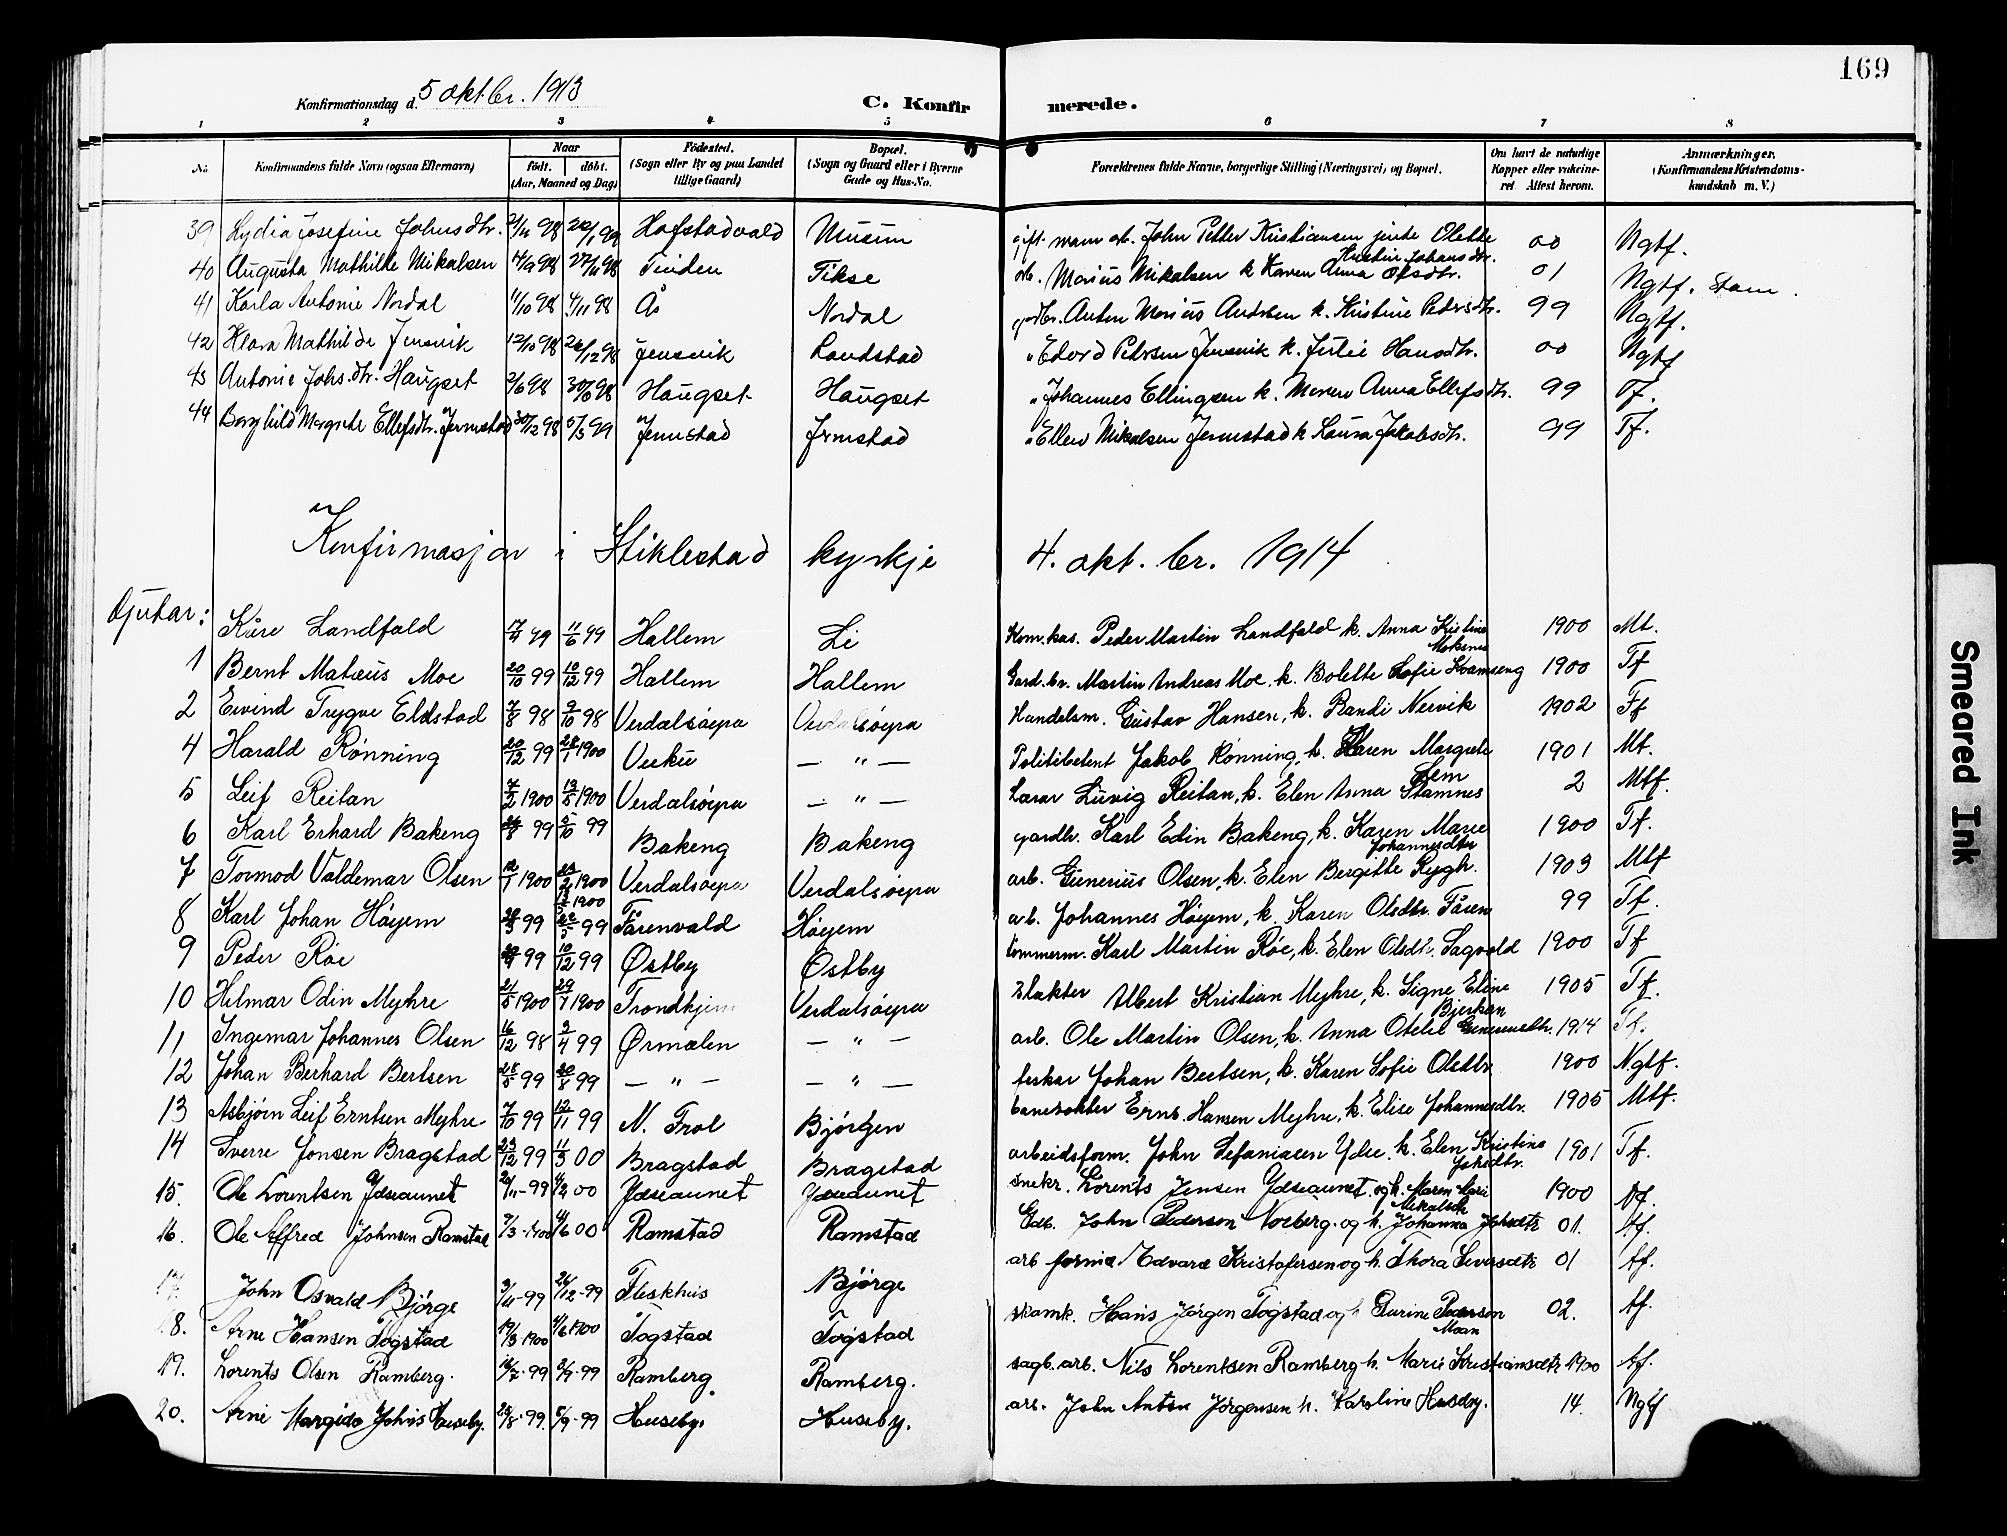 169
Konfirmationsdag d. 5 okt.br. 1913
C. Konfirmerede.
1 2 3 4 5 6 7 8
No.
Konfirmandens fulde Navn (ogsaa Efternavn)
Naar
födt. döbt.
(Aar, Maaned og Dag)
Födested.
(Sogn eller By og paa Landet tillige Gaard)
Bopæl.
(Sogn og Gaard eller i Byerne Gade og Hus-No.
Forældrenes fulde Navne, borgerlige Stilling (Næringsvei) og Bopæl.
Om havt de naturlige Kopper eller vakcineret Attest herom.
Anmærkninger.
(Konfirmandens Kristendomskundskab m. V.)
39 Lydia Josefine Johnsdtr. 98 99 Hofstadvald Musum John Petter Kristiansen Olette 00 Ngtf.
40 Augusta Mathilde Mikalsen 14/9 98 27/11 98 Tinden Tikse arb. Marius Mikalsen k Karen Anna Olsdtr. 01 Ngtf. Stam.
41 Karla Antonie Nordal 11/10 98 4/11 98 Ås Nordal grdbr. Anton Marius Andrsen k. Kristine Pedersdtr. 99 Ngtf.
42 Klara Mathilde Jensvik 12/10 98 26/12 98 Jensvik Landstad " Edvard Petrsen Jensvik k. Julie Hansdtr. 00 Ngtf
43 Antonie Johs.dtr. Haugset 2/6 98 98 Haugset Haugset " Johannes Ellingsen k. Meren Anna Ellefsdtr. 99 Tf.
44 Borghild Margrete Ellefsdtr. Jermstad 30/12 98 5/3 99 Jermstad Jrmstad " Ellev Mikalsen Jermstad k Laura Jakobsdtr. 99 Tf.
Konfirmasjon i Stiklestad kyrkje 4. okt. br. 1914
Gjutar:
Kåre Landfald 99 11/6 99 Hallem Li Kom.kas. Peder Martin Landfald k. Anna Kristine 1900 Mt.
1 Bernt Matæus Moe 20/10 99 10/12 99 Hallem Hallem Gard.br. Martin Andreas Moe. k. Bolette Sofie Kvamseng 1900 Tf
2 Eivind Trygve Eldstad 7/8 98 9/10 98 Verdalsøyra Verdalsøyra Handelsm. Gustav Hansen, k. Randi Nervik 1902 Tf
4 Harald Rønning 20/12 99 28/1 1900 Vuku — " — Politibetent Jakob Rønning, k. Karen Margrete Lem 1901 Mt.
5 Leif Reitan 7/2 1900 13/5 1900 Verdalsøyra — " — Lærar Ludvig Reitan, k. Elen Anna Stamnes 2 Mtf.
6 Karl Erhard Bakeng 99 5/10 99 Bakeng Bakeng gardbr. Karl Edin Bakeng, k. Karen Marie Johannesdtr 1900 Tf.
7 Tormod Valdemar Olsen 12/1 1900 1900 Verdalsøyra Verdalsøyra arb. Gunerius Olsen, k. Elen Bergitte Rygh. 1903 Mtf
8 Karl Johan Høyem 99 99 Fårenvald Høyem arb. Johannes Høyem, k. Karen Olsdtr. Fåren 99 Tf.
9 Peder Røe 99 10/12 99 Østby Østby tømmerm. Karl Martin Røe, k. Elen Olsdtr. Sagvold 1900 Tf
10 Hilmar Odin Myhre 21/5 1900 29/7 1900 Trondhjem Verdalsøyra slakter Albert Kristian Myhre, k. Signe Eline Bjerkan 1905 Tf.
11, Ingemar Johannes Olsen 16/12 98 2/4 99 Ørmælen — " — arb. Ole Martin Olsen, k. Anna Otelie Gunerusdtr. 1914 Tf.
12 Johan Berhard Bertsen 28/5 99 20/8 99 — " — — " — ferkar Johan Bertsen, k. Karen Sofie Olsdtr 1900 Ngtf.
13 Asbjørn Leif Erntsen Myhre 7/10 99 12/11 99 N. Frol Bjørgen banevokter Ernt Hansen Myhre, k. Elise Johannesdtr. 1905 Mtf.
14 Sverre Jonsen Bragstad 23/12 99 11/3 00 Bragstad Bragstad arbeidsform. John Sefaniasen Ydse. k. Elen Kristine Johsdtr. 1901 Tf.
15. Ole Lorentsen Ydseaunet 99 4/2 00 Ydseaunet Ydseaunet snekr. Lorents Jensen Ydseaunet. og h. Maren Mari Mikalsdt 1900 Nf.
16. Ole Alfred Johnsen Ramstad 7/3-1900 4/6 00 Ramstad Ramstad Gdb. John Pederson Norberg. og h. Johanna Johsdtr 01. Af.
17. John Osvald Bjørge 3/11-99 26/12-99 Fleskhus Bjørge arb formd Edvard Kristofersen og h. Thora Seversdtr 01 Af.
18. Arne Hansen Togstad 19/3 1900 4/6 1900 Togstad Togstad skomk. Hans Jørgen Togstad og h Gurine Pederson Moan 02. Af.
19. Lorents Olsen Ramberg. 16/7-99 3/9-99 Ramberg. Ramberg. sagb. arb. Nils Lorentsen Ramberg h. Marie Kristiansdtr 1900 Af.
20. Arne Margido Johns Huseby. 25/8-99. 99 Huseby. Huseby. arb. John Anton Jørgensen h. Karoline 14. Ngtf
Smeared Ink